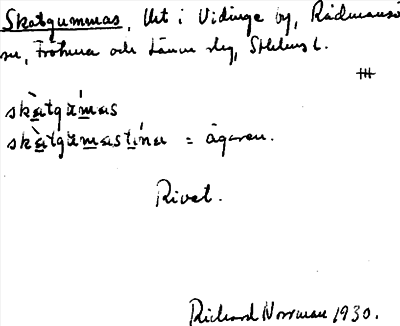 Skatgummas, Urt i Vidinge by, Rådmansö
sn, Frötuna och Länna slg, Sthlms l.
skàtgu̇́mas
skàtgu̇mastína = ägaren.
Rivet.
Richard Norrman 1930.